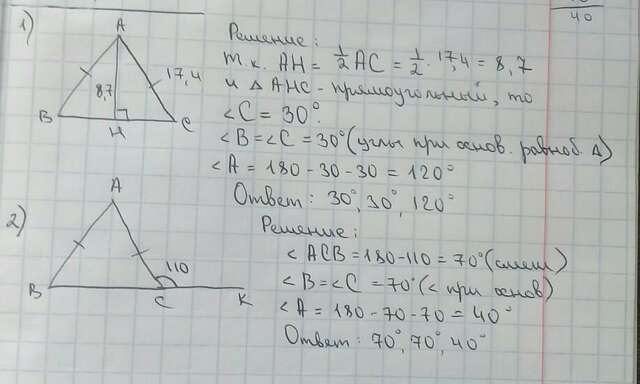 40
1)
A
8,7
17,4
B
H
C
Решение:
т.к. AH = 1/2 AC = 1/2 · 17,4 = 8,7
и △ AHC - прямоугольный, то
∠C = 30°.
∠B = ∠C = 30° (углы при основ. равноб. △)
∠A = 180 - 30 - 30 = 120°
Ответ: 30°, 30°, 120°
2)
A
110
B
C
K
Решение:
∠ACB = 180 - 110 = 70° (смеж)
∠B = ∠C = 70° (∠ при основ)
∠A = 180 - 70 - 70 = 40°
Ответ: 70°, 70°, 40°